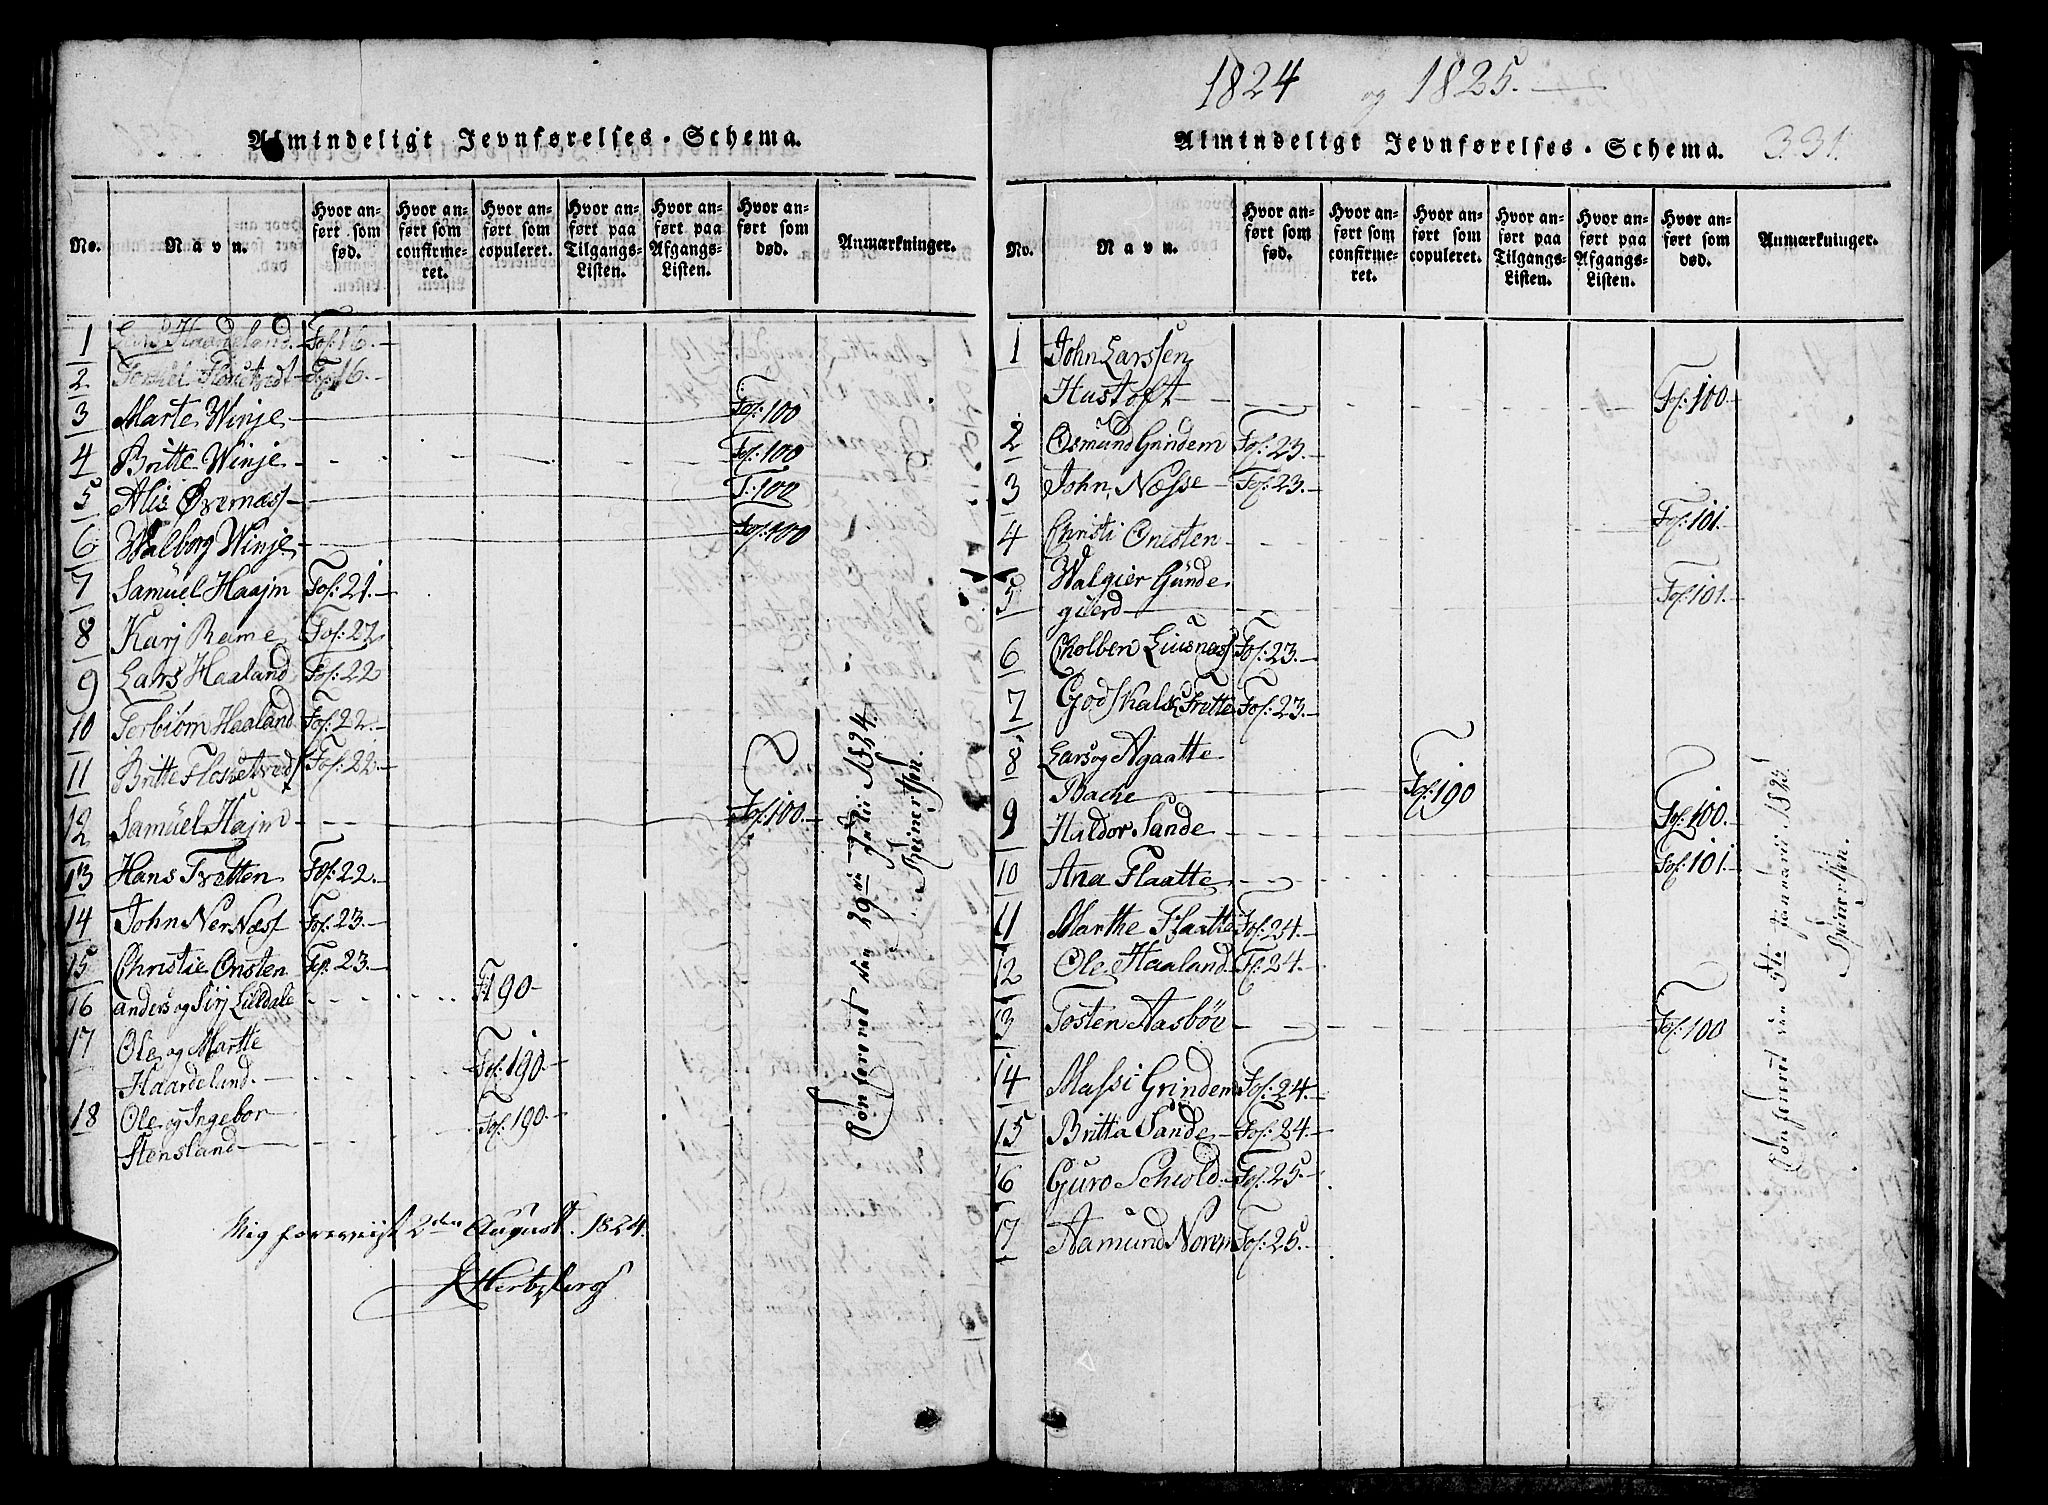 Almindeligt Jevnførelses-Schema.
No.
Navn.
Hvor anført som fød.
Hvor anført som confirmeret.
Hvor anført som copuleret.
Hvor anført paa Tilgangs-Listen.
Hvor anført paa Afgangs-Listen.
Hvor anført som død.
Anmærkninger.
1 Haardeland. Fol: 16.
2 Flesuetvedt Fol: 16.
3 Marte Winje Fol: 100
4 Britte Winje Fol: 100
5 Alis Øvernæs F: 100
6 Walborg Winje Fol: 100
7 Samüel Haajm Fol: 21.
8 Karj Rame Fol: 22
9 Lars Haaland Fol: 22
10 Torbiörn Haaland Fol: 22.
11 Britte Fol: 22.
12 Samüel Hajm Fol: 100.
13 Hans Tretten Fol: 22.
14 John Ner Næs Fol: 23.
15 Christie Onsten Fol: 23.
16 anders og Sirj Lüldale F: 190
17 Ole og Martte
Haardeland. Fol: 190.
18 Ole og Ingebor
Stensland Fol: 190.
Confereret den 29de Julii 1824.
Mig foreviist 2den August. 1824.
Hertzberg
1824 og 1825.
Almindeligt Jevnførelses-Schema.
331.
No.
Navn.
Hvor anført som fød.
Hvor anført som confirmeret.
Hvor anført som copuleret.
Hvor anført paa Tilgangs-Listen.
Hvor anført paa Afgangs-Listen.
Hvor anført som død.
Anmærkninger.
1 John Larssen
Hustoft Fol: 100.
2 Osmünd Grindem Fol: 23.
3 John Næsse Fol: 23.
4 Christi Onesten Fol: 101.
5 Walgier Günde
gierd Fol: 101.
6 Cholben Liusnæs Fol: 23.
7 Godskalk Trette Fol: 23.
8 Lars og Agaatte
Bache Fol: 190
9 Haldor Sande Fol: 100.
10 Ana Flaatte Fol: 101.
11 Marthe Flaatte Fol: 24.
12 Ole Haaland Fl: 24.
13 Tosten Aasböe Fol: 100
14 Massi Grindem Fol: 24.
15 Britta Sande Fol: 24.
16 Guro Schiold Fol: 25.
17 Aamünd Norem Fol: 25.
Confereret den 5te Januarii 1825